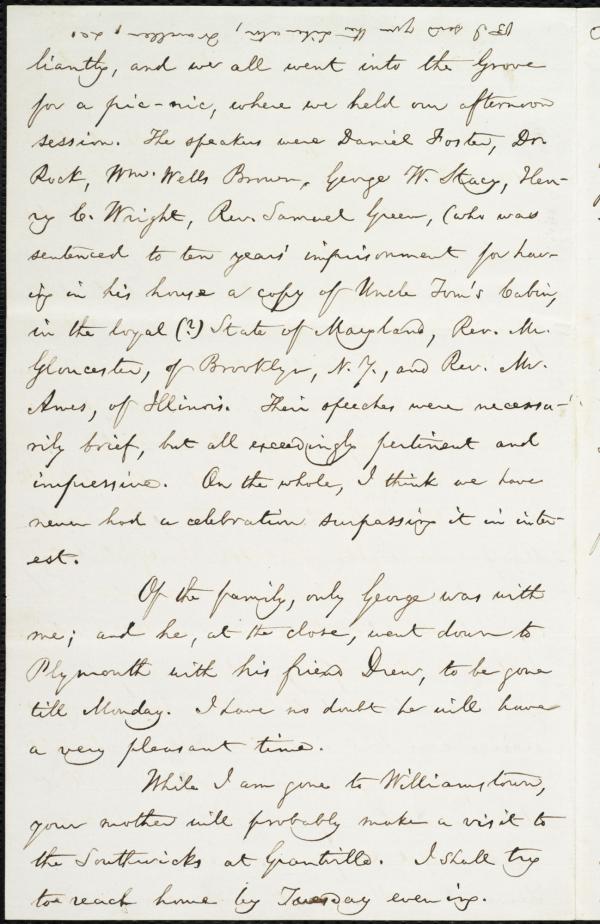 ☞ I send you the Liberator, Traveller, &c.
liantly, and we all went into the Grove
for a pic-nic, where we held our afternoon
session. The speakers were Daniel Foster, Dr.
Rock, Wm. Wells Brown, George W. Stacy, Hen-
ry C. Wright, Rev. Samuel Green, (who was
sentenced to ten years' imprisonment for hav-
ing in his house a copy of Uncle Tom's Cabin,
in the loyal (?) State of Maryland, Rev. Mr.
Gloucester, of Brooklyn, N.Y., and Rev. Mr.
Ames, of Illinois. Their speeches were necessa-
rily brief, but all exceedingly pertinent and
impressive. On the whole, I think we have
never had a celebration surpassing it in inter-
est.
Of the family, only George was with
me; and he, at the close, went down to
Plymouth with his friend Drew, to be gone
till Monday. I have no doubt he will have
a very pleasant time.
While I am gone to Williamstown,
your mother will probably make a visit to
the Southwicks at Grantville. I shall try
to reach home by Tuesday evening.